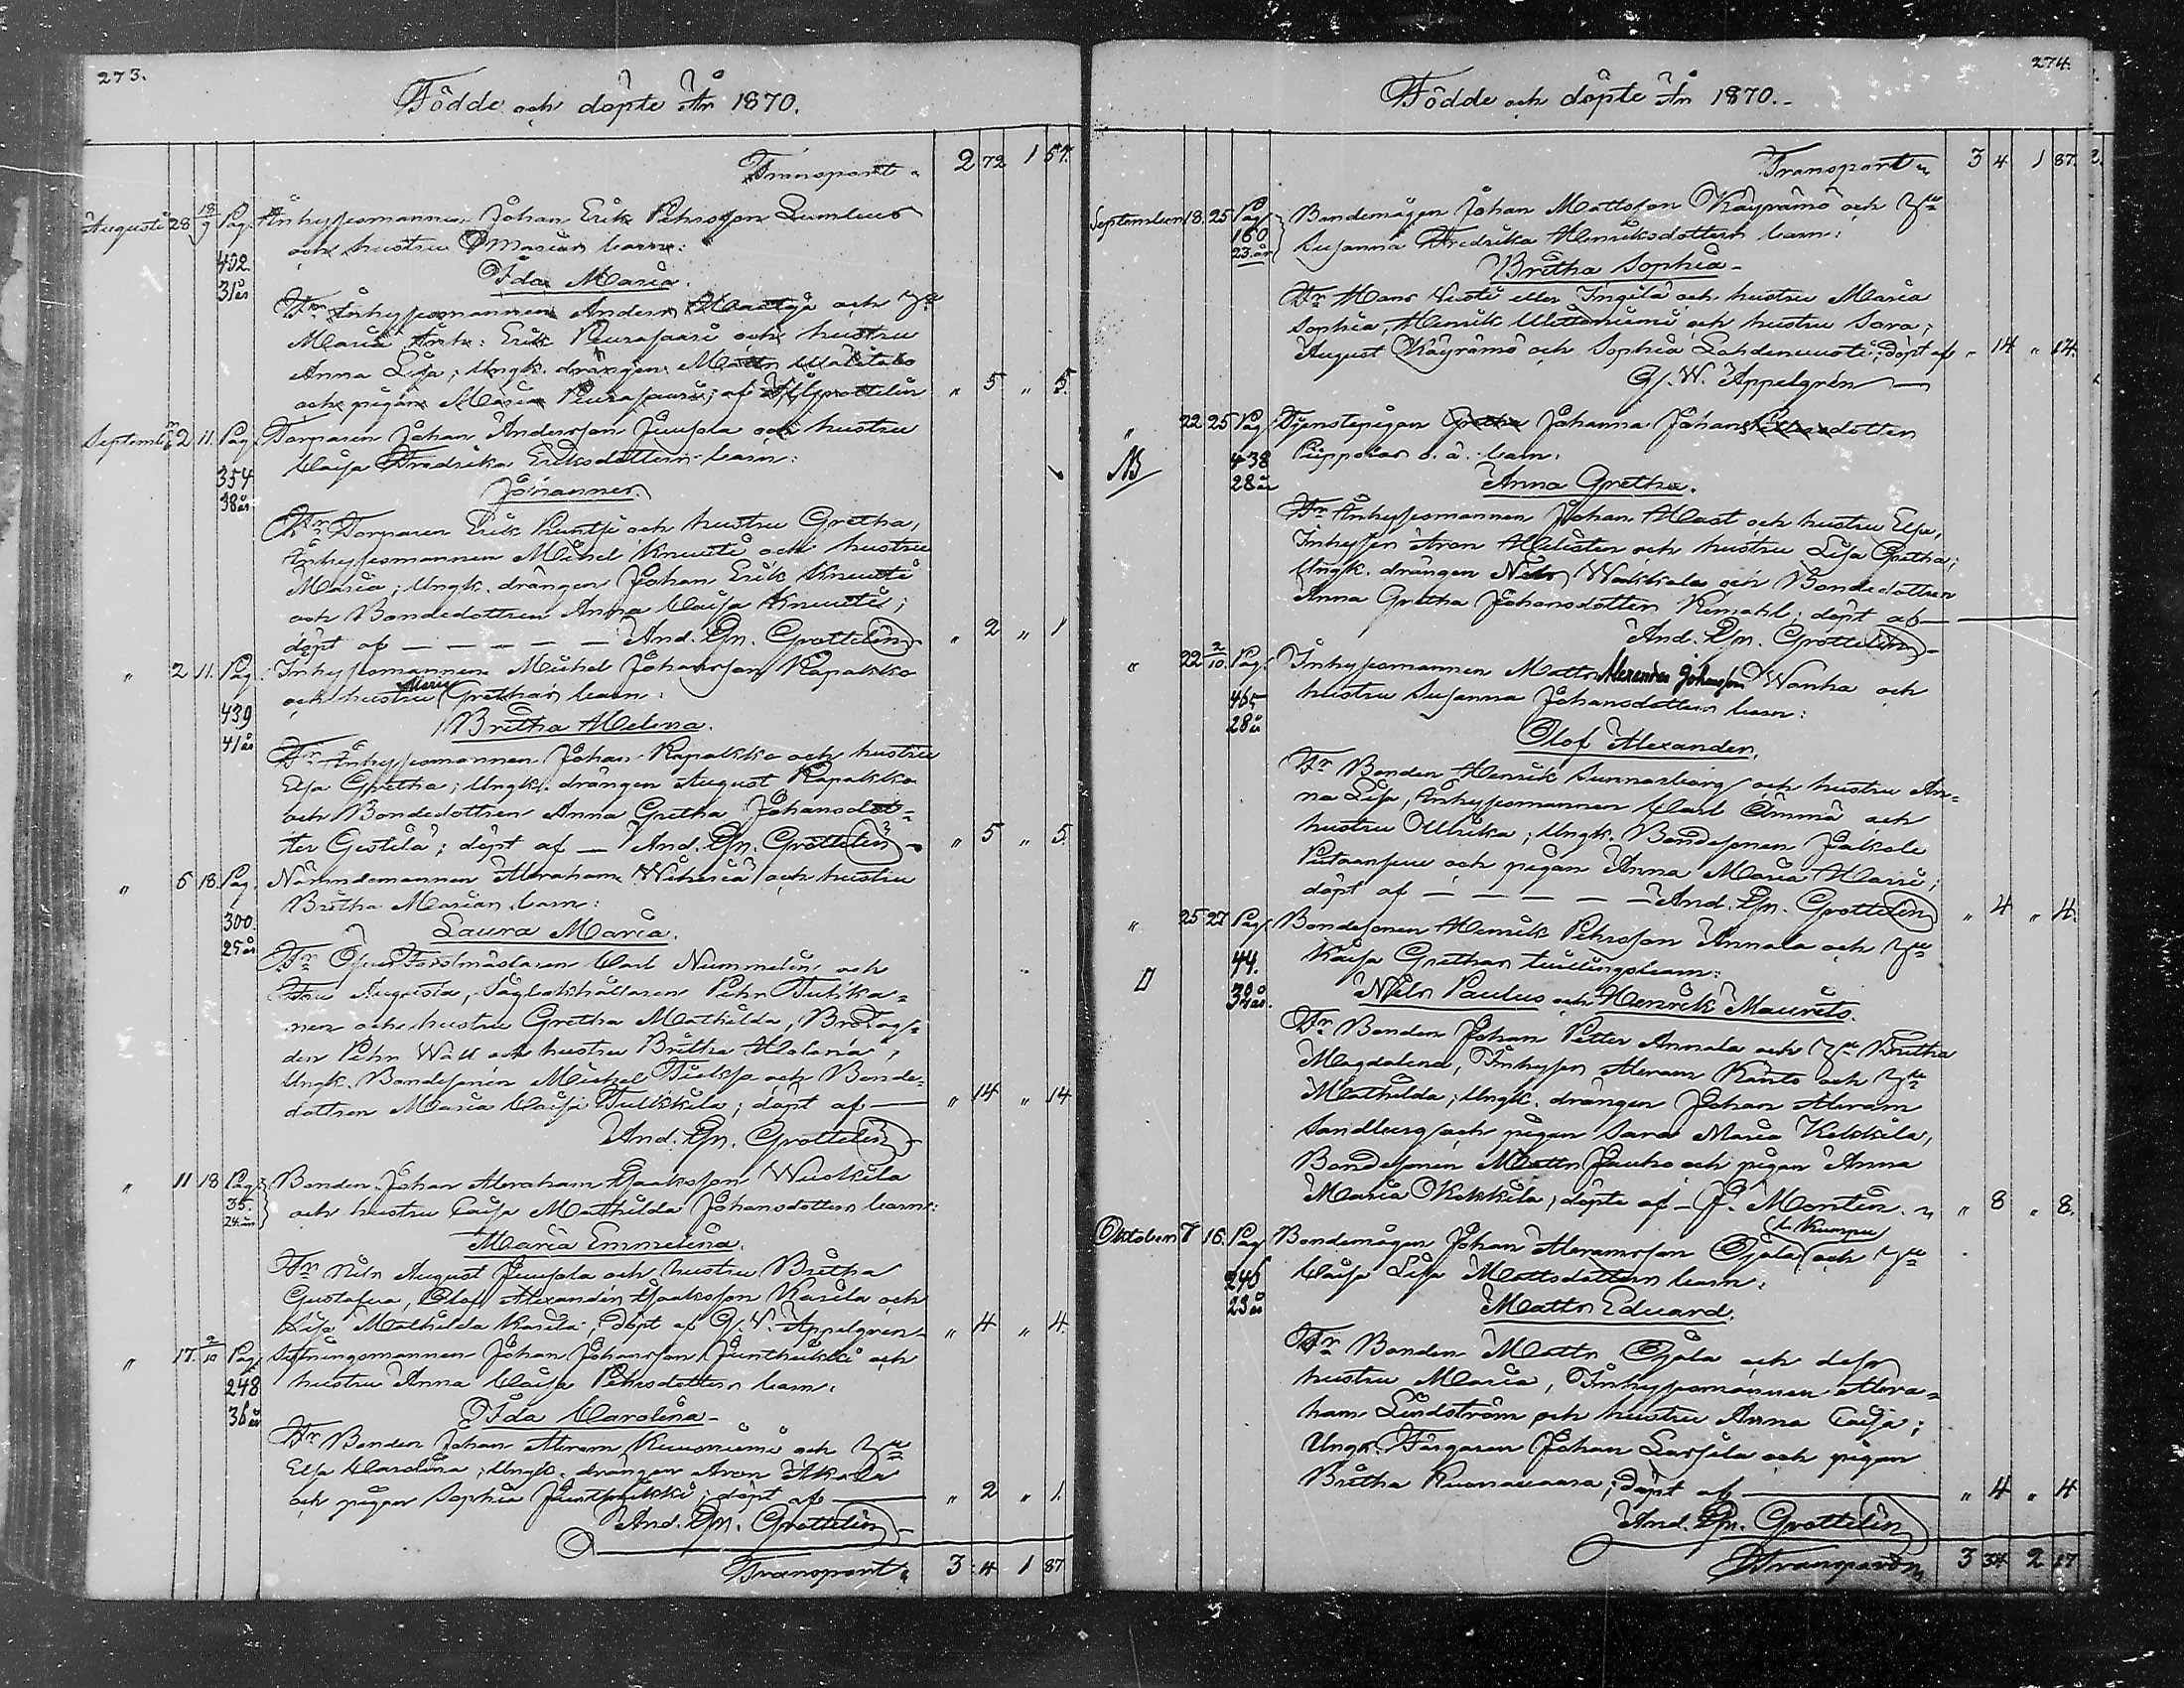 273.
Födde och döpte År 1870.
Transport " 2 72 1 57.
Augusti 28 18/9 Pag. Inhysesmannen Johan Erik Pehrsson Lumbus
och hustru Marias barn:
402.
31 år
Ida Maria.
Fr. Inhysesmannen Anders och hu
Maria Inh: Erik Peurasaari och hustru
Anna Lisa; Ungk. drängen Matts
och pigan Maria Peurasaari; af Grottelin " 5 " 5.
September 2 11. Pag. Torparen Johan Andersson Juusola och hustru
Caisa Fredrika Eriksdotters barn:
354
38 år
Johannes.
Fr. Torparen Erik Kuntsi och hustru Gretha,
Inhysesmannen Mikel Knuuti och hustru
Maria; Ungk. drängen Johan Erik Knuuti
och Bondedottren Anna Caisa Knuuti;
döpt af — — — — — And. Gr. Grottelin " 2 " 1
" 2 11. Pag. Inhysesmannen Michel Johansson Rapakko
och hustru Maria Grethas barn:
439
41 år
Britha Helena.
Fr. Inhysesmannen Johan Rapakko och hustru
Elsa Gretha; Ungk. drängen August Rapakko
och Bondedottren Anna Gretha Johansdot-
ter Gestilä; döpt af — And. Gr. Grottelin " 5 " 5.
" 6 18. Pag. Nämndemannen Abraham och hustru
Britha Marias barn:
300.
25 år
Laura Maria.
Fr. Öfver Forstmästaren Carl Nummelin och
Fru Augusta, Pehr
nen och hustru Gretha Mathilda,
den Pehr Wall och hustru Britha Helena,
Ungk. Bondesonen Michel och Bonde-
dottren Maria Caisa Tulkkila; döpt af — " 14 " 14
And. Gr. Grottelin
" 11 18 Pag. Bonden Johan Abraham Isaksson Wuolkila
35.
24 år
och hustru Caisa Mathilda Johansdotters barn:
Maria Emmelina.
Fr. Nils August Juusola och hustru Britha
Gustafva, Olof Alexander Isaksson Karila och
Lisa Mathilda Karila; döpt af G. W. Appelgren " 4 " 4.
" 17. 2/10 Pag. Johan Johansson Junthikki och
248
hustru Anna Caisa Pehrsdotters barn:
36 år
Ida Carolina
Fr. Bonden Johan Abram Kuusniemi och hu
Elsa Carolina; Ungk. drängen Aron Akala
och pigan Sophia Junthikki; döpt af — " 2 " 1.
And. Gr. Grottelin
Transport " 3 4 1 87
274.
Födde och döpte År 1870.
Transport " 3 4 1 87.
September 18. 25 Pag. Bondemågen Johan Mattsson Käyrämö och hu
160
23 år
Susanna Fredrika Henriksdotters barn:
Britha Sophia
Fr. Hans Wuoti eller Ingilä och hustru Maria
Sophia, Henrik Uittoniemi och hustru Sara;
August Käyrämö och Sophia Lahdenwuoti; döpt af " 14 " 14.
G. W. Appelgrén
" 22 25 Pag. Tjenstepigan Gretha Johanna Johansdotter
438
28 år
NB
Piippolas o. ä. barn:
Anna Gretha.
Fr. Inhysesmannen Johan Hast och hustru Elsa,
Inhysen Aron Helistén och hustru Lisa Gretha;
Ungk. drängen Nils Wakkala och Bondedottren
Anna Gretha Johansdotter Kemahl; döpt af —
And. Gr. Grottelin
" 22 2/10. Pag. Inhysesmannen Matts Alexander Johansson Wanha och
465
28 år
hustru Susanna Johansdotters barn:
Olof Alexander.
Fr. Bonden Henrik Sunnarborg och hustru An-
na Lisa, Inhysesmannen Carl Ämmä och
hustru Ulrika; Ungk. Bondesonen Jakob
Putaansuu och pigan Anna Maria Harri;
döpt af — — — — — And. Gr. Grottelin " 4 " 4.
" 25 27 Pag. Bondesonen Henrik Pehrsson Annala och hu
44.
Kaisa Grethas tvillingsbarn:
Nils Paulus och Henrik Maurits.
Fr. Bonden Johan Petter Annala och hu Britha
Magdalena, Inhysen Abram Kanto och hu
Mathilda; Ungk. drängen Johan Abram
Sandberg och pigan Sara Maria Kokkila,
Bondesonen Matts Jauho och pigan Anna
Maria Kokkila; döpte af — J. Montin. " 8 " 8.
Oktober 7 16. Pag. Bondemågen Johan Abramsson Ojala l. Kumpu och hu
246
23 år
Caisa Lisa Mattsdotters barn:
Matts Eduard.
Fr. Bonden Matts Ojala och dess
hustru Maria, Inhysesmannen Abra-
ham Lindström och hustru Anna Caisa;
Ungk. Färgaren Johan Lassila och pigan
Britha Kuonawaara; döpt af — " 4 " 4
And. Gr. Grottelin
Transport " 3 34 2 17